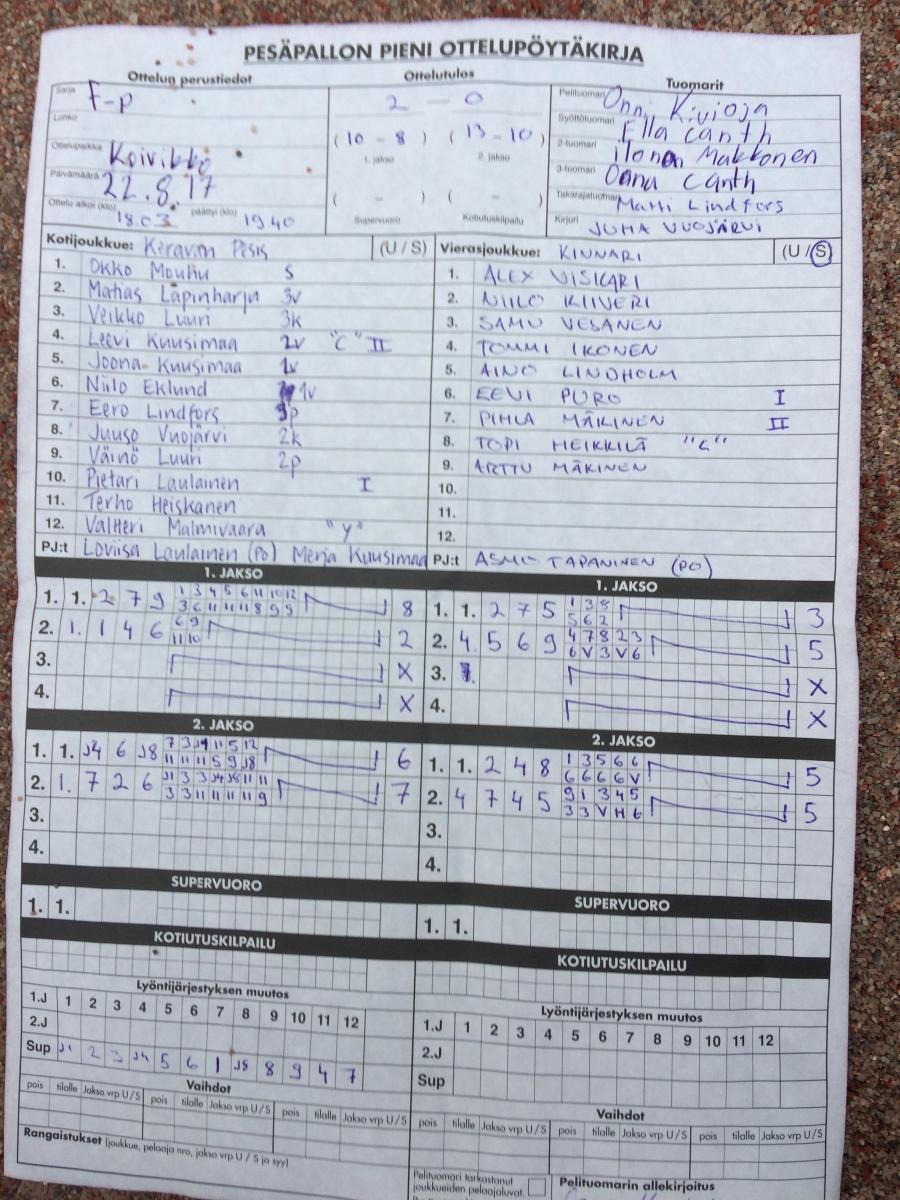 PESÄPALLON PIENI OTTELUPÖYTÄKIRJA
Ottelun perustiedot
Sarja F-P
Lohko
Ottelupaikka Koivikko
Päivämäärä 22.8.17
Ottelu alkoi (klo) 18.03 päättyi (klo) 19.40
Ottelutulos
2 - 0
(10 - 8) (13 - 10)
1. jakso 2. jakso
( - ) ( - )
Supervuoro Kotiutuskilpailu
Tuomarit
Pelituomari Onni Kivioja
Syöttötuomari Ella Canth
2-tuomari Ilona Makkonen
3-tuomari Oana Canth
Takarajatuomari Matti Lindfors
Kirjuri JUHA VUOJÄRVI
Kotijoukkue: Keravan Pesis (U / S)
1. Okko Mouhu S
2. Matias Lapinharju 3v
3. Veikko Luuri 3k
4. Leevi Kuusimaa 2v "C" II
5. Joona Kuusimaa 1v
6. Niilo Eklund 1v
7. Eero Lindfors 3p
8. Juuso Vuojärvi 2k
9. Väinö Luuri 2p
10. Pietari Laulainen I
11. Terho Heiskanen
12. Valtteri Malmivaara "Y"
PJ:t Loviisa Laulainen (PO) Merja Kuusimaa
Vierasjoukkue: KINNARI (U / S)
1. ALEX VISKARI
2. NIILO KIIVERI
3. SAMU VESANEN
4. TOMMI IKONEN
5. AINO LINDHOLM
6. EEVI PURO I
7. PIHLA MÄKINEN II
8. TOPI HEIKKILÄ "C"
9. ARTTU MÄKINEN
10.
11.
12.
PJ:t ASMO TAPANINEN (PO)
1. JAKSO
1. 1. 2 7 9 1 3 4 5 6 11 10 12 8
3 6 11 11 11 8 9 9
2. 1. 1 4 6 6 9 2
11 10
3. X
4. X
1. JAKSO
1. 1. 2 7 5 1 3 8 3
5 6 2
2. 4. 5 6 9 4 7 8 2 3 5
6 V 3 V 6
3. X
4. X
2. JAKSO
1. 1. J4 6 J8 7 3 J4 11 5 12 6
11 11 11 5 9 J8
2. 1. 7 2 6 J1 3 3 J4 J8 11 11 7
3 3 11 11 11 11 9
3.
4.
2. JAKSO
1. 1. 2 4 8 1 3 5 6 6 5
6 6 6 6 V
2. 4 7 4 5 9 1 3 4 5 5
3 3 V H 6
3.
4.
SUPERVUORO
1. 1.
SUPERVUORO
1. 1.
KOTIUTUSKILPAILU
KOTIUTUSKILPAILU
Lyöntijärjestyksen muutos
1.J 1 2 3 4 5 6 7 8 9 10 11 12
2.J
Sup J1 2 3 J4 5 6 1 J8 8 9 4 7
Lyöntijärjestyksen muutos
1.J 1 2 3 4 5 6 7 8 9 10 11 12
2.J
Sup
Vaihdot
pois tilalle Jakso vrp U / S pois tilalle Jakso vrp U / S pois tilalle Jakso vrp U / S
Vaihdot
pois tilalle Jakso vrp U / S pois tilalle Jakso vrp U / S pois tilalle Jakso vrp U/S
Rangaistukset (joukkue, pelaaja nro, jakso vrp U / S ja syy)
Pelituomari tarkastanut
joukkueiden pelaajaluvat.
Pelituomarin allekirjoitus